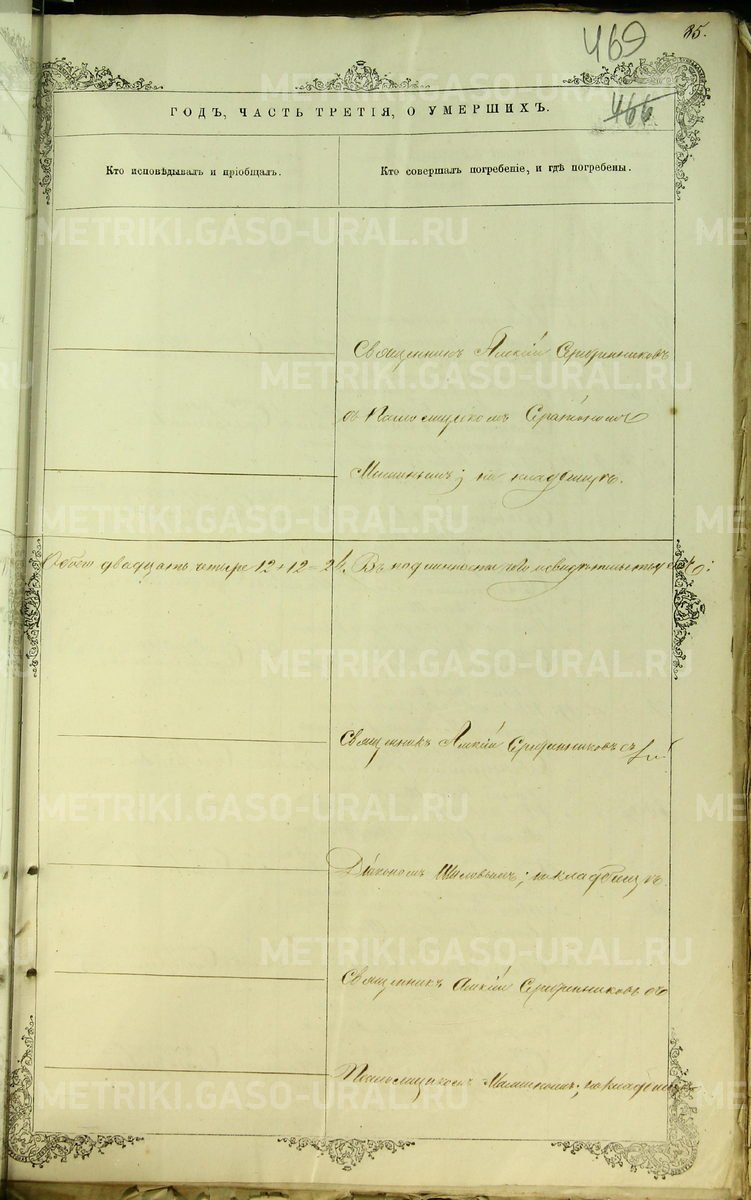 469
35.
466
ГОДЪ, ЧАСТЬ ТРЕТІЯ, О УМЕРШИХЪ.
Кто исповѣдывалъ и пріобщалъ.
Кто совершалъ погребеніе, и гдѣ погребены.
METRIKI.GASO-URAL.RU
Священникъ Алексій Серебренниковъ
съ Псаломщикомъ
Маминымъ; на кладбищѣ.
двадцать четыре 12 + 12 = 24. Въ подлинности чего свидѣтельствуютъ:
METRIKI.GASO-URAL.RU
Священникъ Алексій Серебренниковъ съ
Діакономъ Шиловымъ; на кладбищѣ
Священникъ Алексій Серебренниковъ съ
Псаломщикомъ Маминымъ; на кладбищѣ